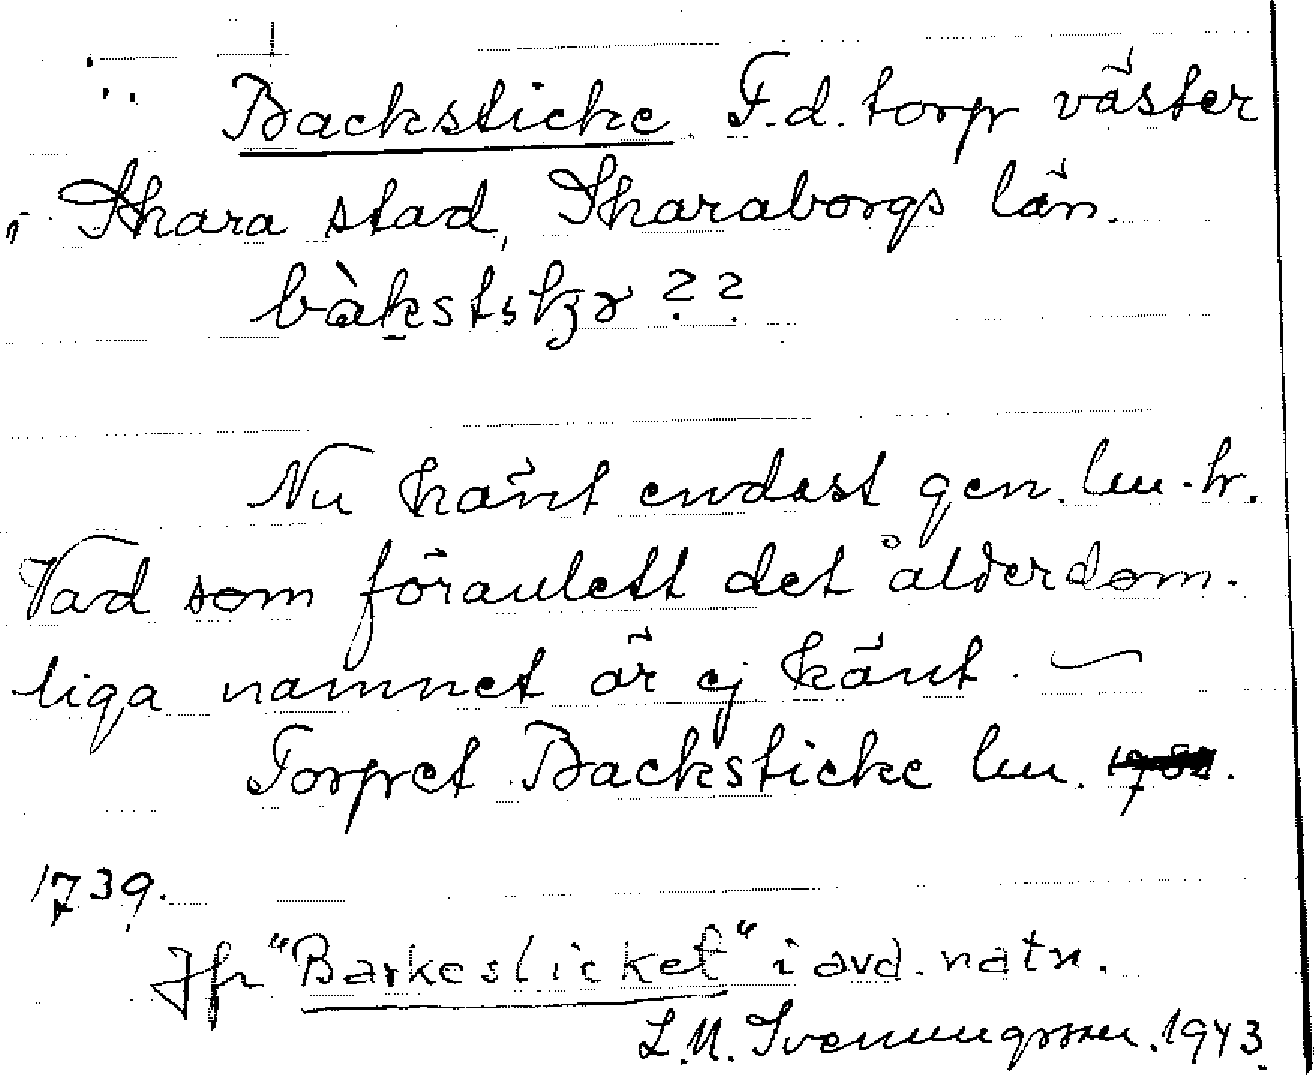 Backsticke F.d. torp väster
i Skara stad, Skaraborgs län.
Nu känt endast gen. lm-h.
Vad som föranlett det ålderdom-
liga namnet är ej känt. —
Torpret Backsticke lm.
1739.
Jfr "Barkeslicket" i avd. natn.
L.M. Svenungsson. 1943.